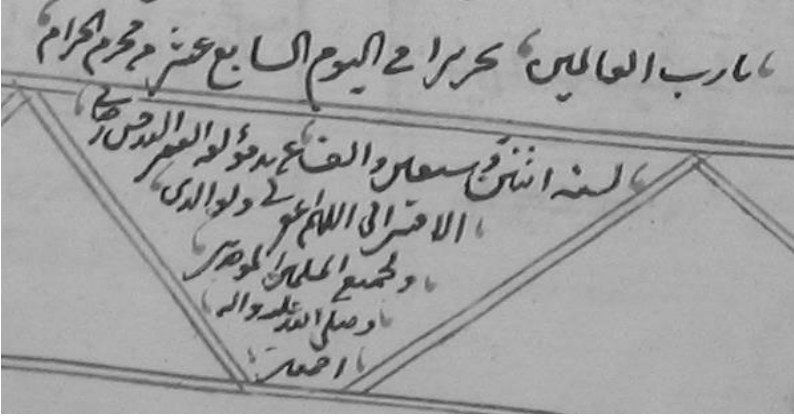 يا رب العالمين تحريرا في اليوم السابع عشر من محرم الحرام
لسنه اثنتين وسبعين والف على يد مؤلفه الفقير
الاللهم اغفر لي ولوالدي
ولجميع المسلمين الموحدين
وصلى الله عليه واله
اجمعين